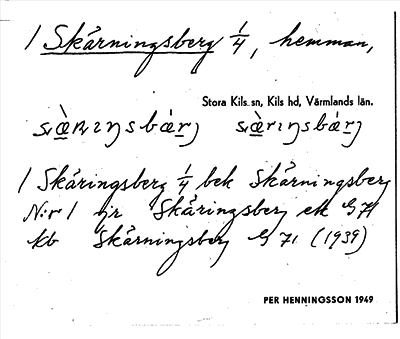 1 Skårningsberg 1/4, hemman,
Stora Kils sn, Kils hd, Värmlands län.
1 Skåringsberg 1/4 bek Skårningsberg
N:r 1 jr Skåringsberg ek G 71
kb Skårningsberg G 71 (1939)
PER HENNINGSSON 1949